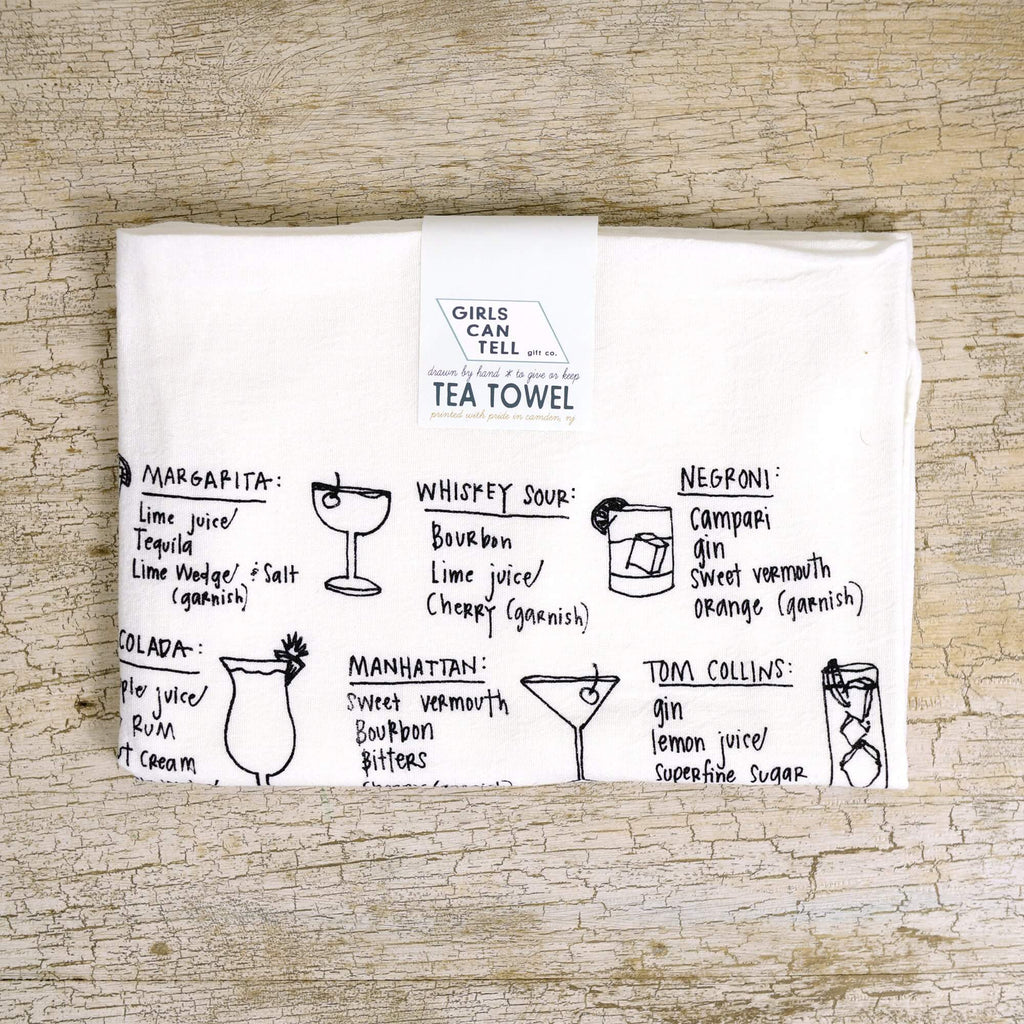 GIRLS
CAN
TELL gift co.
drawn by hand * to give or keep
TEA TOWEL
printed with pride in camden, nj
MARGARITA:
Lime juice
Tequila
Lime Wedge & Salt
(garnish)
WHISKEY SOUR:
Bourbon
Lime juice
Cherry (garnish)
NEGRONI:
Campari
gin
sweet vermouth
orange (garnish)
COLADA:
juice
RUM
Cream
MANHATTAN:
sweet vermouth
Bourbon
Bitters
TOM COLLINS:
gin
lemon juice
superfine sugar